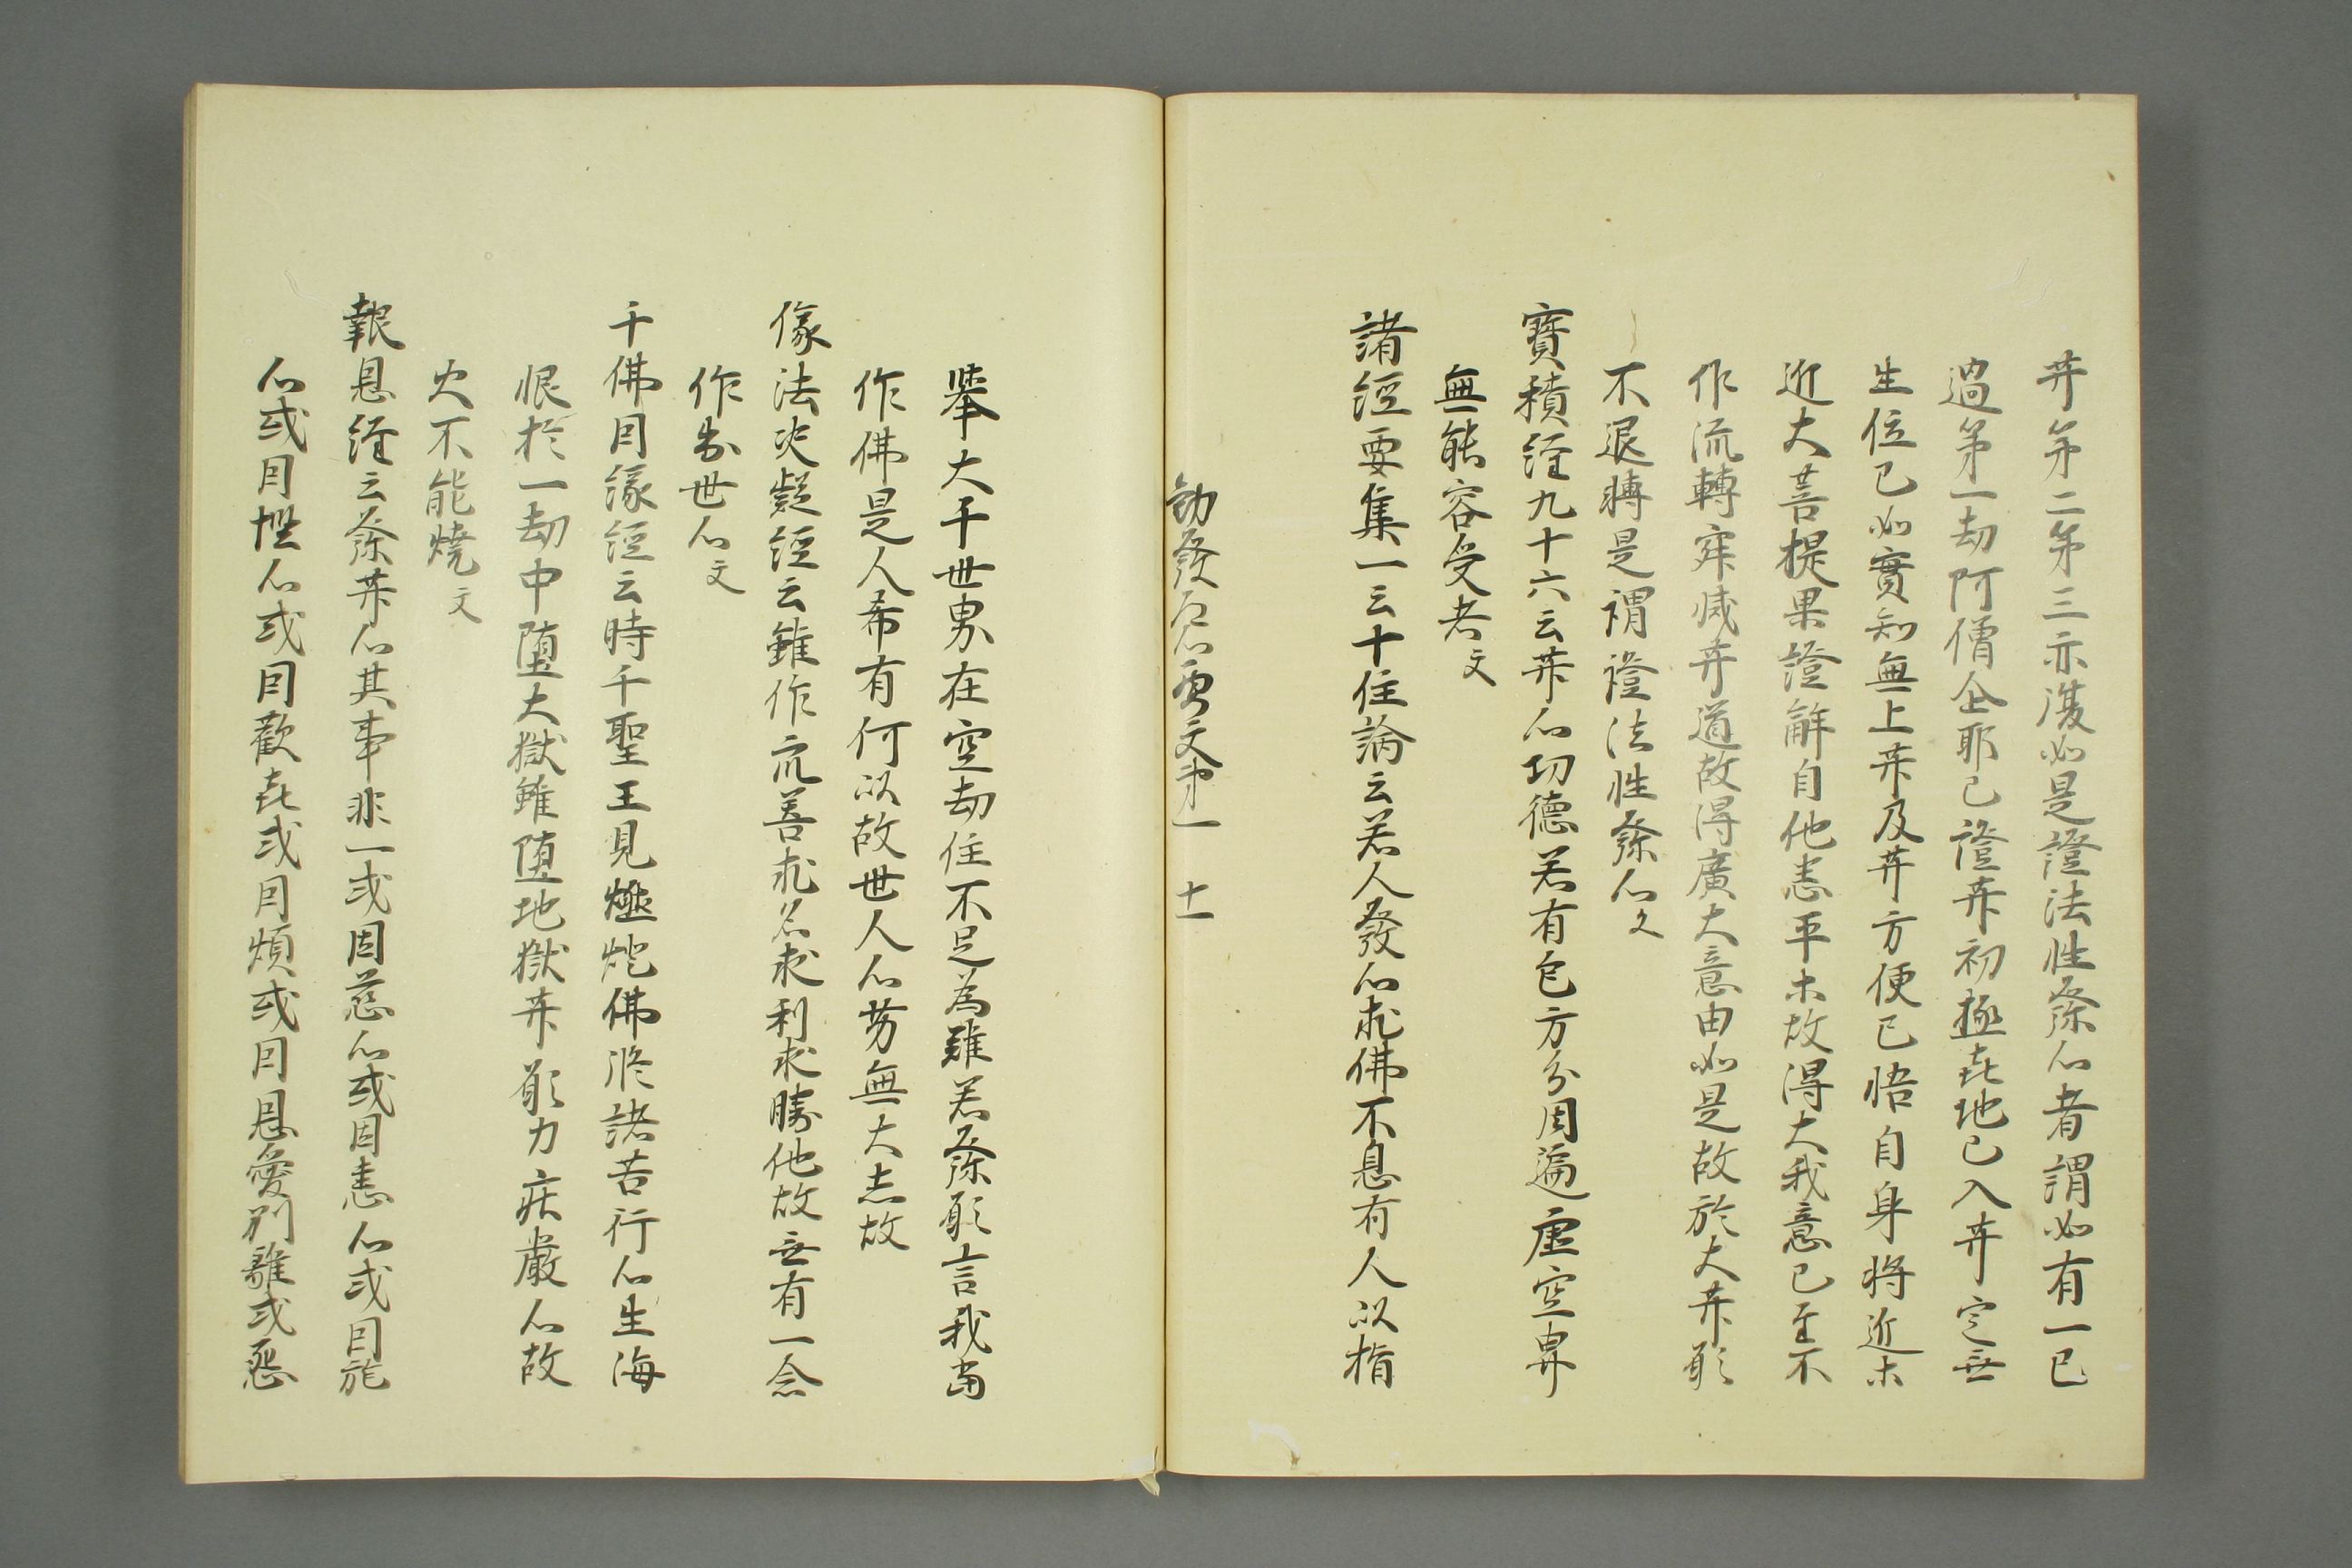 井第二第三亦復如是證法性發心者謂如有一已
過第一劫阿僧企耶已證𦬇初極喜地已入𦬇定無
生位已如實知無上𦬇及𦬇方便已悟自身将近木
近大菩提果證解自他悉平木故得大我意已至不
作流轉寂滅𦬇道故得廣大意由如是故於大𦬇願
不退轉是謂證法性發心文
寶積經九十六云𦬇心功德若有色方分周遍虚空界
無能容受者文
諸經要集一云十住論云若人發心求佛不息有人以指
勧發 要文第一 十一
舉大千世界在空劫住不足為難若發願言我當
作佛是人希有何以故世人心劣無大志故
像法決疑經云雖作衆善求名求利求勝他故無有一念
作出世心文
千佛因縁經云時千聖王見 佛 諸苦行心生海
恨於一劫中堕大獄雖堕地獄𦬇願力荘嚴心故
火不能燒文
報恩經云發𦬇心其事非一或因慈心或因恚心或因施
心或因慳心或因歡喜或因煩或因恩愛別離或惡